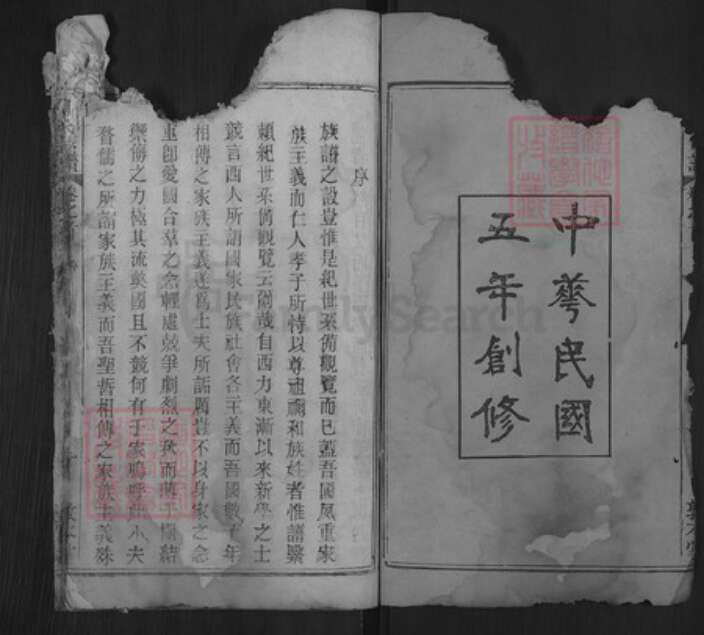 中華民國
五年創修
序
族譜之設豈惟是紀世系備觀覽而已蓋吾國風重家
族主義而仁人孝子所恃以尊祖禰和族姓者惟譜繄
賴紀世系備觀覽云爾哉自西力東漸以來新學之士
競言西人所謂國家民族社會各主義而吾國數千年
相傳之家族主義遂爲士夫所詬厲豈不以身家之念
重卽愛國合羣之念輕處競爭劇烈之秋而團結
禦侮之力極其流獘國且不競何有于家嗚呼此小夫
瞀儒之所謂家族主義而吾聖哲相傳之家族主義殊
FamilySearch